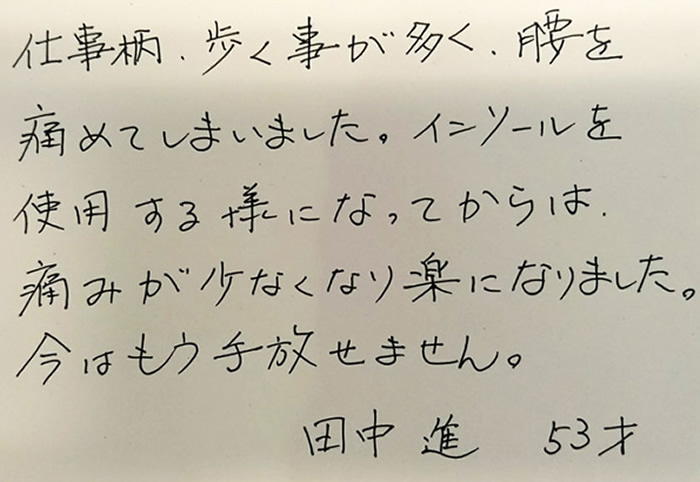 仕事柄、歩く事が多く、腰を
痛めてしまいました。インソールを
使用する様になってからは、
痛みが少なくなり楽になりました。
今はもう手放せません。
田中進 53才